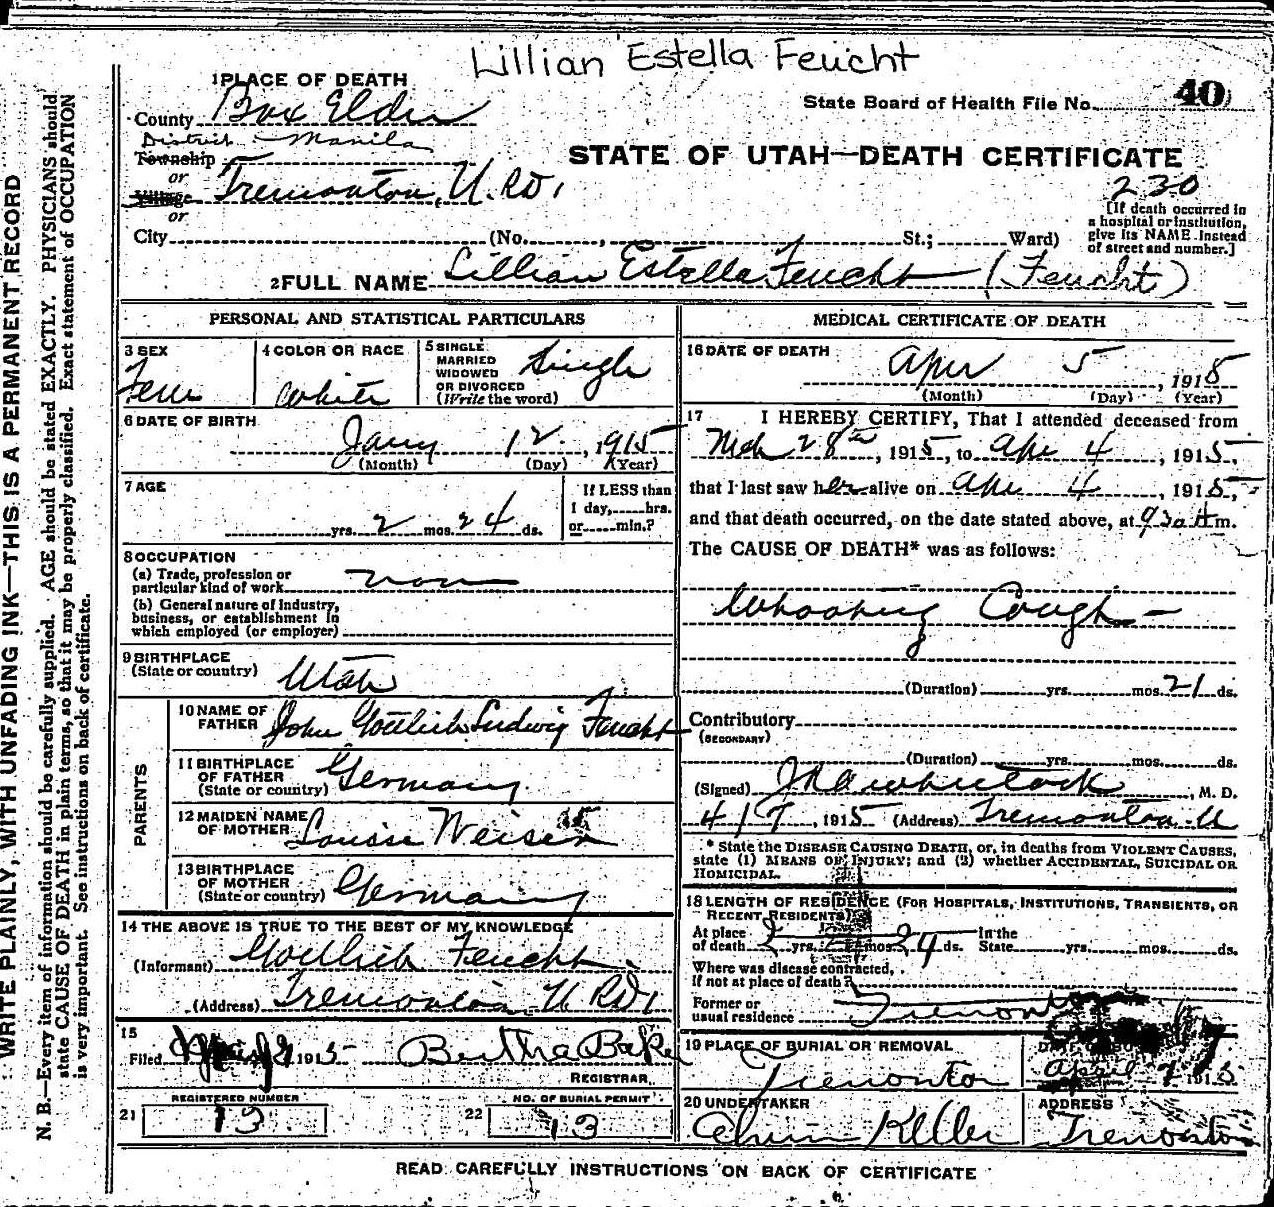 Lillian Estella Feucht
1 PLACE OF DEATH
State Board of Health File No. 40
County Box Elder
District Manila
Township
or
STATE OF UTAH—DEATH CERTIFICATE
230
Village Tremonton, U. RD 1
or
[If death occurred in
a hospital or institution,
give its NAME instead
of street and number.]
City (No. , St.; Ward)
2 FULL NAME Lillian Estella Feucht (Feucht)
PERSONAL AND STATISTICAL PARTICULARS
3 SEX
Fem
4 COLOR OR RACE
White
5 SINGLE
MARRIED
WIDOWED
OR DIVORCED
(Write the word)
Single
6 DATE OF BIRTH
Jany 12, 1915
(Month) (Day) (Year)
7 AGE
yrs. 2 mos. 24 ds.
If LESS than
1 day, hrs.
or min.?
8 OCCUPATION
(a) Trade, profession or
particular kind of work non
(b) General nature of industry,
business, or establishment in
which employed (or employer)
9 BIRTHPLACE
(State or country) Utah
PARENTS
10 NAME OF
FATHER John Gottlieb Ludwig Feucht
11 BIRTHPLACE
OF FATHER
(State or country) Germany
12 MAIDEN NAME
OF MOTHER Louise Weisen
13 BIRTHPLACE
OF MOTHER
(State or country) Germany
14 THE ABOVE IS TRUE TO THE BEST OF MY KNOWLEDGE
(Informant) Gottlieb Feucht
(Address) Tremonton U RD 1
15
Filed 1915 Bertha Baker
REGISTRAR.
REGISTERED NUMBER
21 13
NO. OF BURIAL PERMIT
22 13
MEDICAL CERTIFICATE OF DEATH
16 DATE OF DEATH
Apr 5, 1915
(Month) (Day) (Year)
17 I HEREBY CERTIFY, That I attended deceased from
Mch 28th, 1915, to Apr 4, 1915,
that I last saw her alive on Apr 4, 1915,
and that death occurred, on the date stated above, at 930 A m.
The CAUSE OF DEATH* was as follows:
Whooping Cough
(Duration) yrs. mos. 21 ds.
Contributory
(SECONDARY)
(Duration) yrs. mos. ds.
(Signed) Whitlock, M. D.
4/7, 1915 (Address) Tremonton U
* State the DISEASE CAUSING DEATH, or, in deaths from VIOLENT CAUSES,
state (1) MEANS OF INJURY; and (2) whether ACCIDENTAL, SUICIDAL OR
HOMICIDAL.
18 LENGTH OF RESIDENCE (FOR HOSPITALS, INSTITUTIONS, TRANSIENTS, OR
RECENT RESIDENTS)
At place
of death 2 yrs. mos. 24 ds. In the
State yrs. mos. ds.
Where was disease contracted,
if not at place of death?
Former or
usual residence Tremonton
19 PLACE OF BURIAL OR REMOVAL
Tremonton
April 7 1915
20 UNDERTAKER
Keller
ADDRESS
Tremonton
READ CAREFULLY INSTRUCTIONS ON BACK OF CERTIFICATE
WRITE PLAINLY, WITH UNFADING INK—THIS IS A PERMANENT RECORD
N. B.—Every item of information should be carefully supplied. AGE should be stated EXACTLY. PHYSICIANS should
state CAUSE OF DEATH in plain terms, so that it may be properly classified. Exact statement of OCCUPATION
is very important. See instructions on back of certificate.